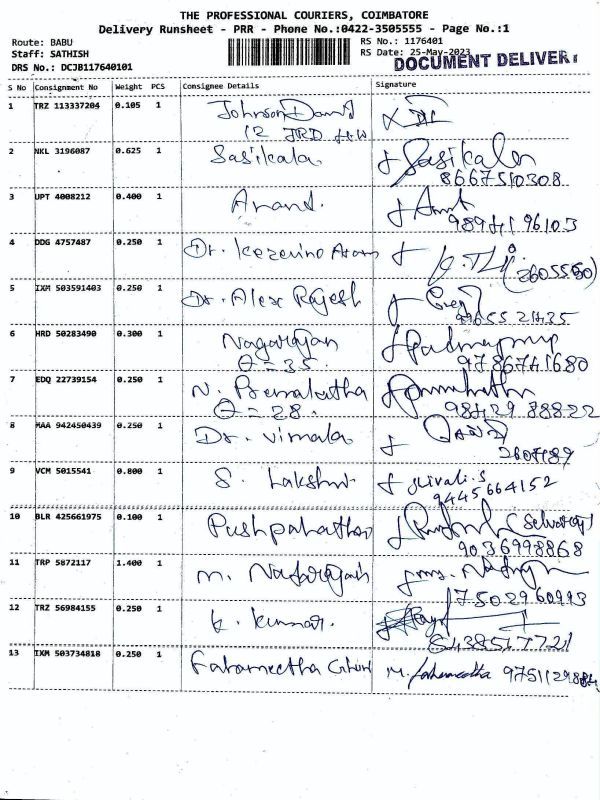 THE PROFESSIONAL COURIERS, COIMBATORE
Delivery Runsheet - PRR - Phone No.:0422-3505555 - Page No.:1
Route: BABU
RS No.: 1176401
Staff: SATHISH
RS Date: 25-May-2023
DRS No.: DCJB117640101
DOCUMENT DELIVER
S No Consignment No Weight PCS Consignee Details Signature
1 TRZ 113337204 0.105 1 Johnson David
12 JRD
2 NKL 3196087 0.625 1 Sasikala Sasikala
8667510308
3 UPT 4008212 0.400 1 Anand.
98941 96103
4 DDG 4757487 0.250 1 Dr. 
5 IXM 503591403 0.250 1 Dr. Alex Rajesh
6 HRD 50283490 0.300 1 Nagarajan
θ = 35.
9786741680
7 EDQ 22739154 0.250 1 N.
θ = 28.
98429 88822
8 MAA 942450439 0.250 1 Dr. Vimala
9 VCM 5015541 0.800 1 S. Lakshmi
9445664152
10 BLR 425661975 0.100 1 (Selvaraj)
9036998868
11 TRP 5872117 1.400 1 N. Nagarajan
7502960993
12 TRZ 56984155 0.250 1 K. Kumar.
13 IXM 503734818 0.250 1